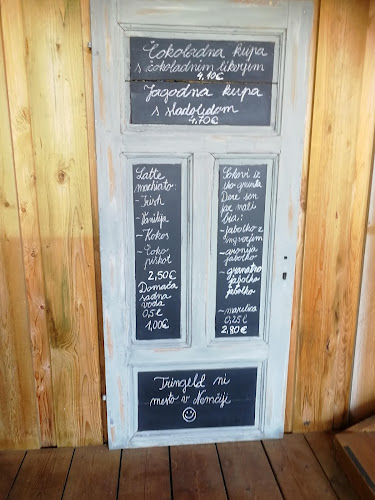 Čokoladna kupa
s čokoladnim likerjem
4,10€
Jagodna kupa
s sladoledom
4,70€
Latte
machiato:
- Irish
- Vanilija
- Kokos
- Čoko
piškot
2,50€
Domača
sadna
voda
0,5l
1,00€
Sokovi iz
- jabolko z
ingverjem
- aronija
jabolko
jabolko
jabolko
- marelica
0,25l
2,80€
Tringeld ni
mesto v Nemčiji